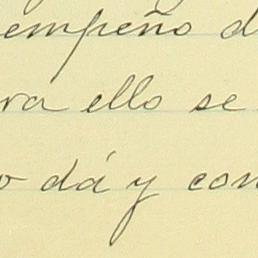 empeño d
ra ello se
o dá y con